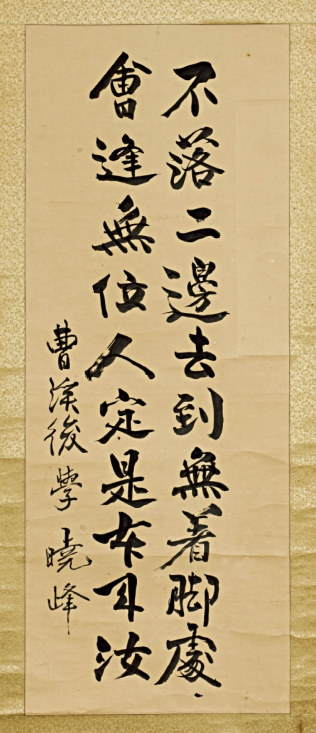 不落二邊去到無着脚處
會逢無位人定是本來汝
曹溪後學 曉峰